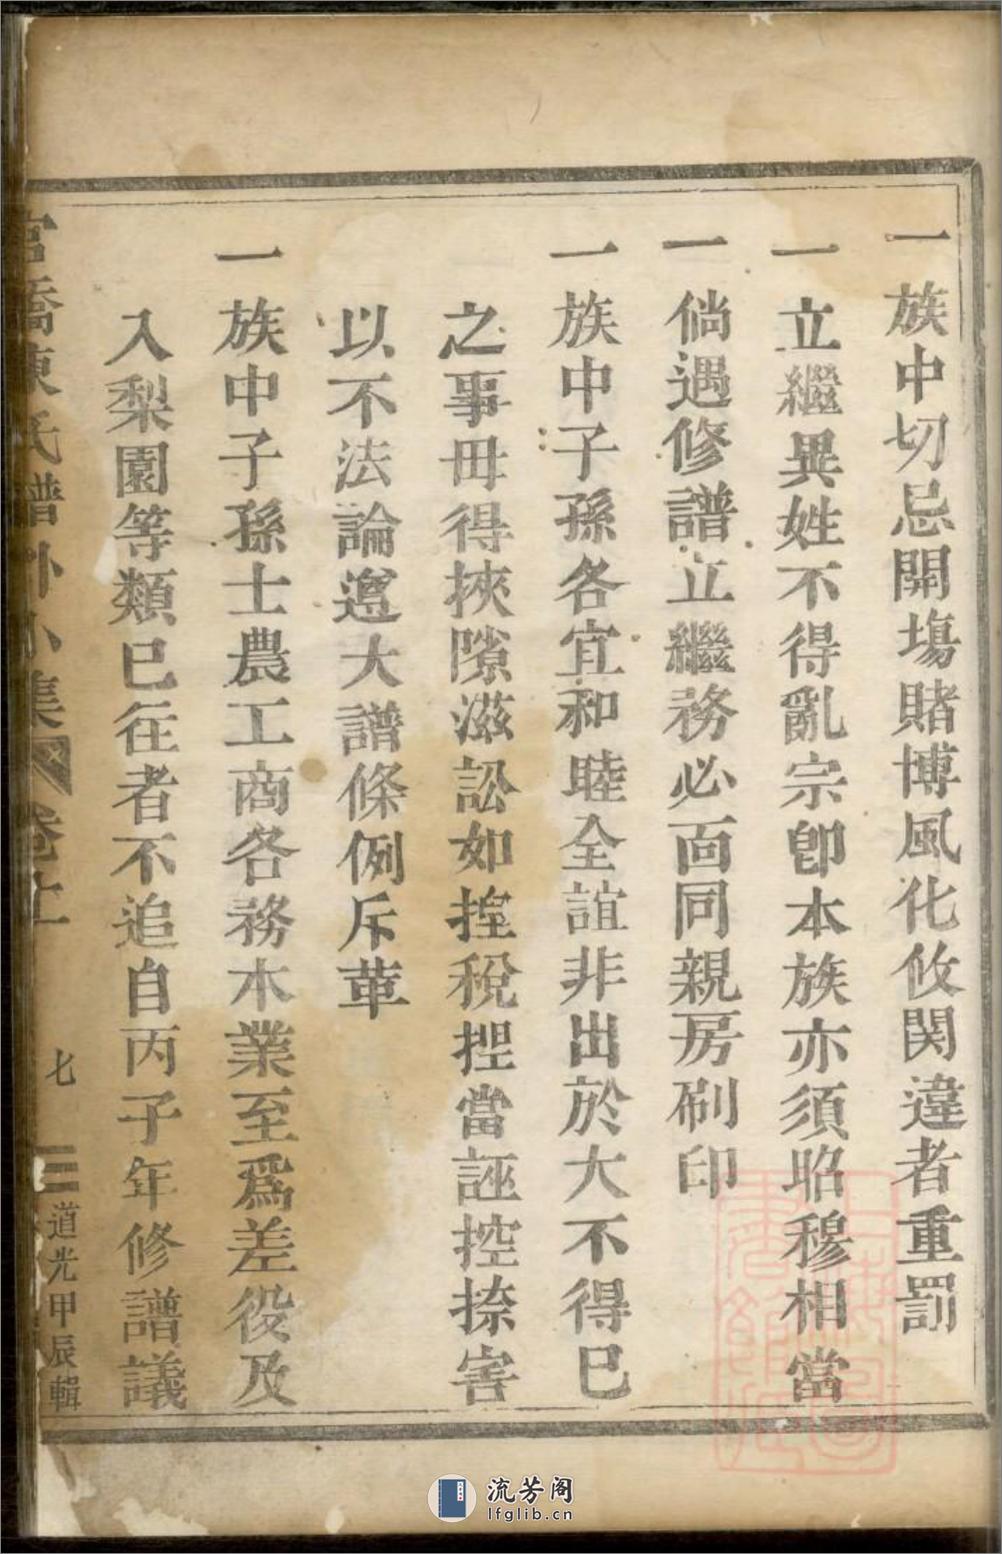 一族中切忌開塲賭博風化攸関違者重罰
一立繼異姓不得亂宗卽本族亦須昭穆相當
一倘遇修譜立繼務必面同親房刷印
一族中子孫各宜和睦全誼非出於大不得已
之事毋得挾隙滋訟如揑稅揑當誣控捺害
以不法論遵大譜條例斥革
一族中子孫士農工商各務本業至爲差役及
入梨園等類已往者不追自丙子年修譜議
官橋陳氏譜外小集 卷上 七 道光甲辰輯
流芳阁
lfglib.cn